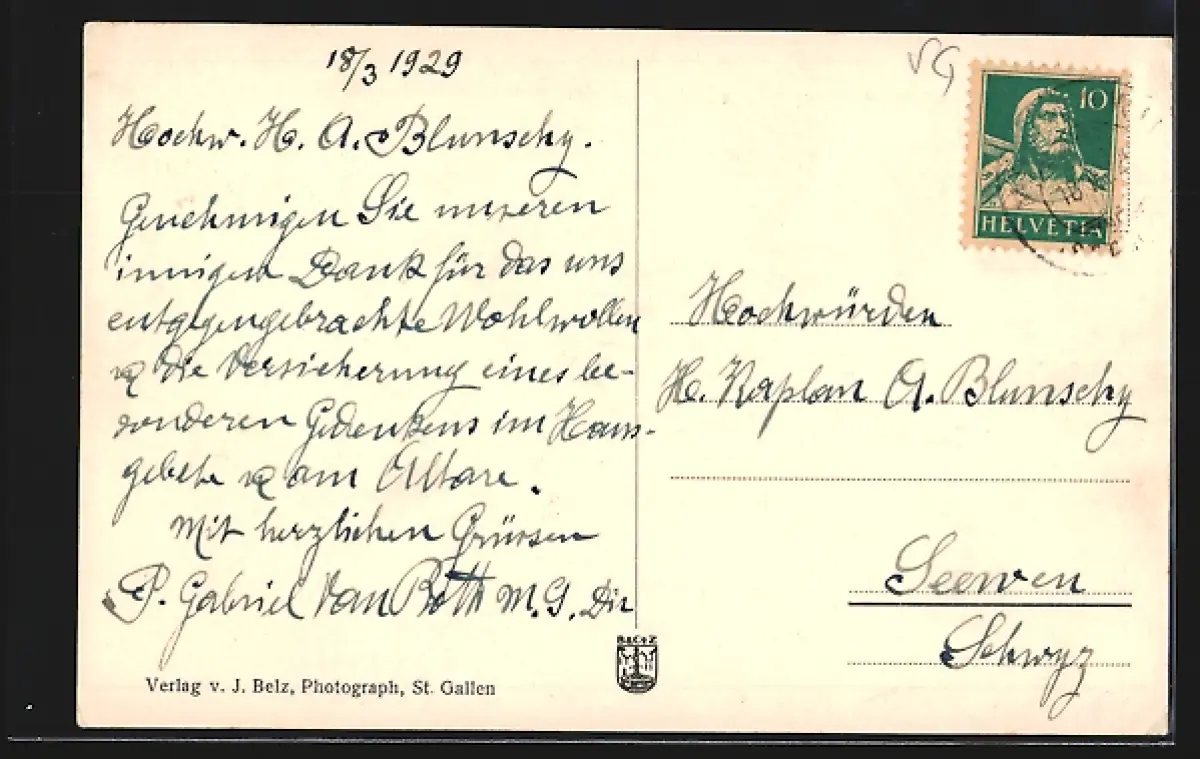 18/3 1929
Hochw. H. A. Blunschy.
Genehmigen Sie unseren
innigen Dank für das uns
entgegengebrachte Wohlwollen
& die Versicherung eines be-
sonderen Gedenkens im Haus-
gebete & am Altare.
Mit herzlichen Grüssen
P. Gabriel Van Roth M. S. Dir
Verlag v. J. Belz, Photograph, St. Gallen
SG
10
HELVETIA
Hochwürden
H. Kaplan A. Blunschy
Seewen
Schwyz